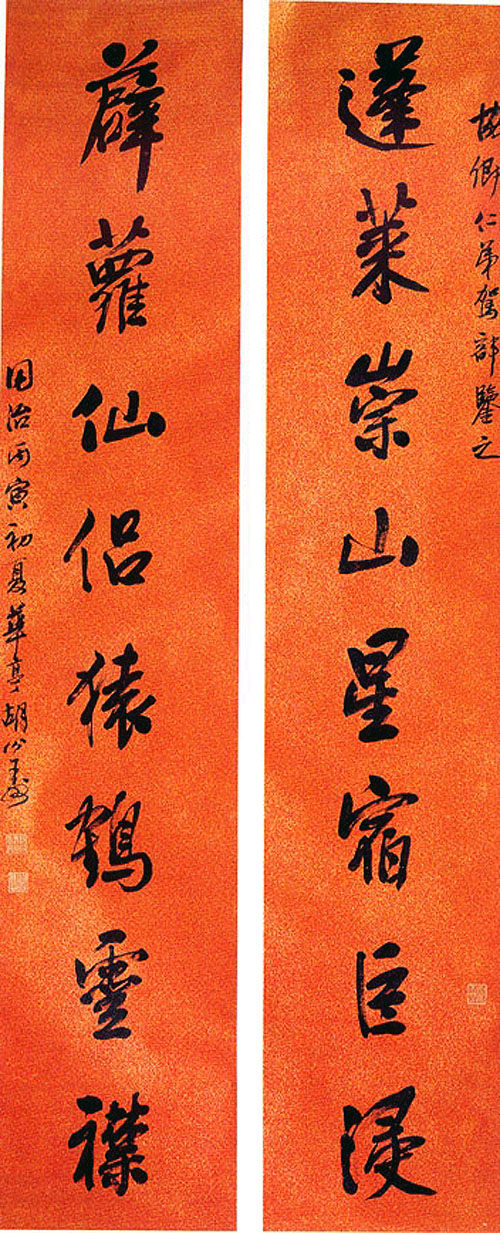 卿仁弟駕部鑒之
蓬莱崇山星宿巨浸
薜蘿仙侣猿鶴靈襟
同治丙寅初夏華亭胡公壽